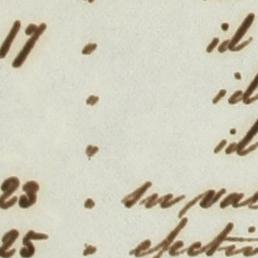 17 " id
" id
" id
23 " Su val
25 " efectiv